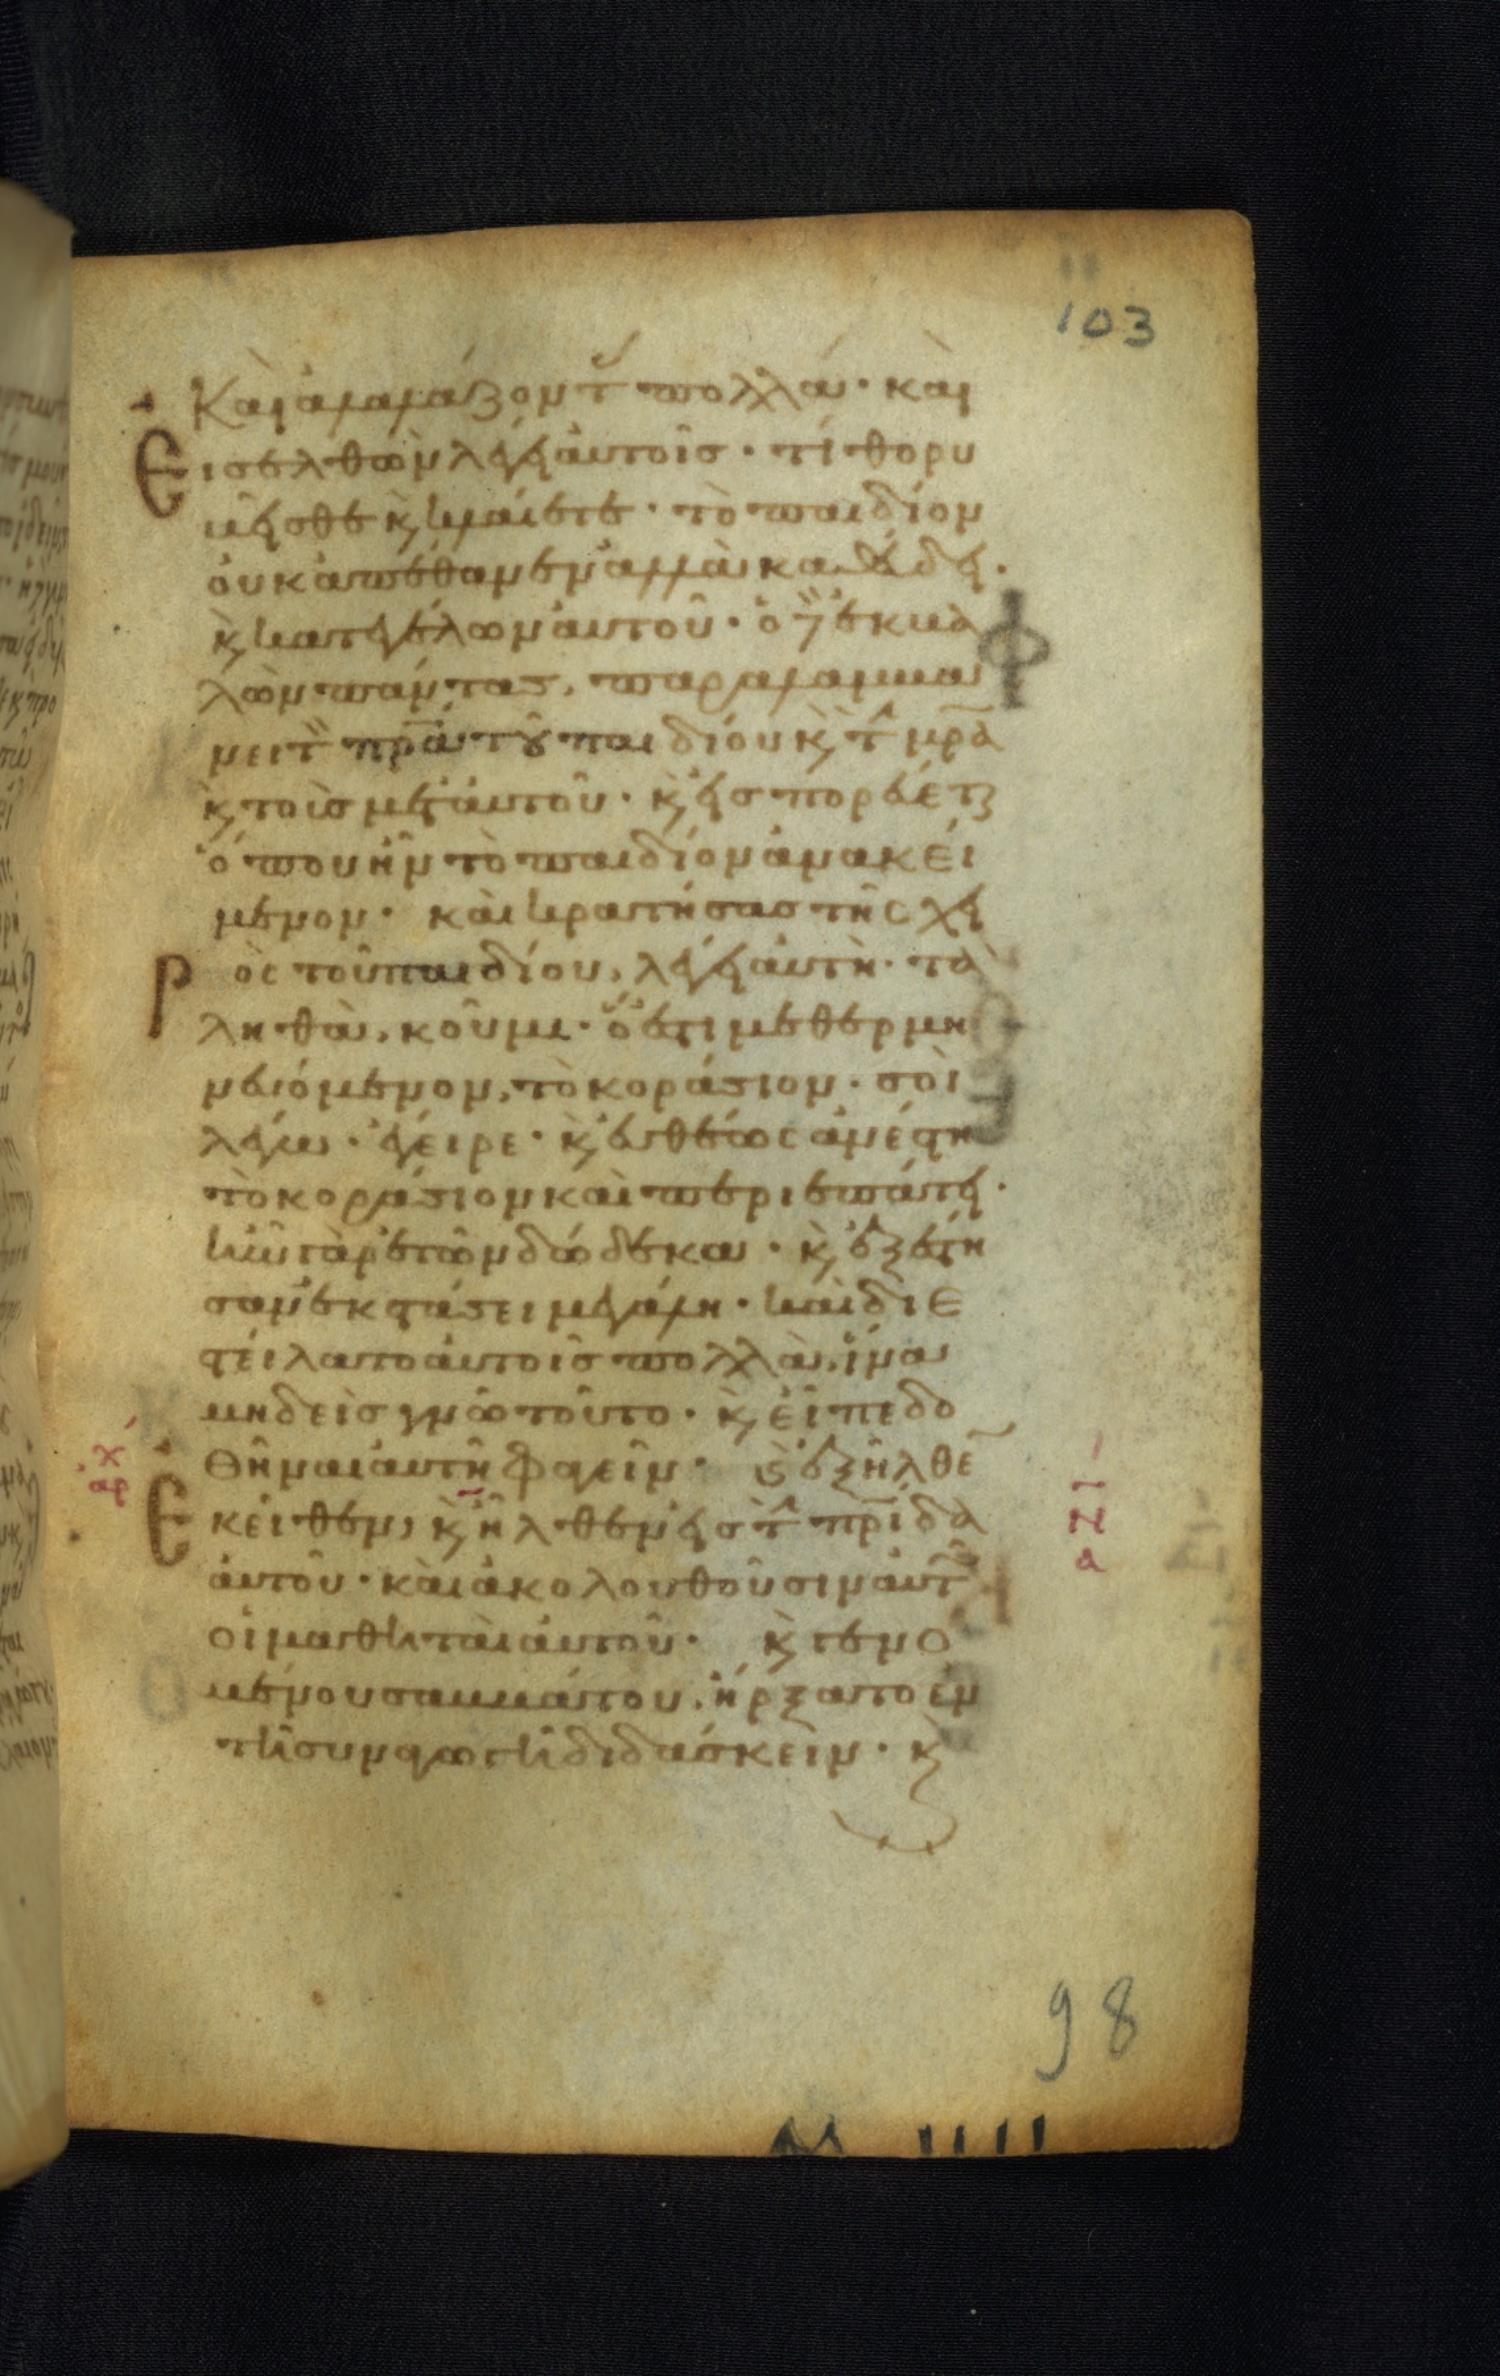 103
Καὶ ἀλαλάζοντ πολλά· καὶ
Εισελθὼν λέγει ἀυτοῖς· τί θορυ
βεῖσθε κ κλαίετε· τὸ παιδίον
ὀυκ ἀπέθανεν ἀλλὰ καθέυδει·
κ κατεγέλων ἀυτοῦ· ὁ δὲ ἐκβα
λὼν πάντας, παραλαμβά
νει τ πρα τοῦ παιδίου κ τ μρα
κ τοὺς μετ ἀυτοῦ· κ εἰσπορέυετ
ὅπου ἦν τὸ παιδίον ἀνακεί
μενον· καὶ κρατήσας τῆς χει
ρὸς τοῦ παιδίου, λέγει ἀυτῆ· τα
ληθὰ, κοῦμι· ὅ ἐστι μεθερμη
νευόμενον, τὸ κοράσιον· σοὶ
λέγω· ἔγειρε· κ ἐυθέως ἀνέστη
τὸ κοράσιον καὶ περιεπάτει·
ἦν γὰρ ἐτῶν δώδεκα· κ ἐξέστη
σαν ἐκστάσει μεγάλη· καὶ διε
στείλατο ἀυτοῖς πολλὰ, ἵνα
μηδεὶς γνῶ τοῦτο· κ εἶπε δο
θῆναι ἀυτῆ φαγεῖν· κ ἐξῆλθε
αρχ
Ἐκεῖθεν, κ ἦλθεν εἰς τ πρίδα
ἀυτοῦ· καὶ ἀκολουθοῦσιν ἀυτ
οἱ μαθηταὶ ἀυτοῦ· κ γενο
μένου σαββάτου, ἤρξατο ἐν
τῆ συναγωγῆ διδάσκειν· κ
98